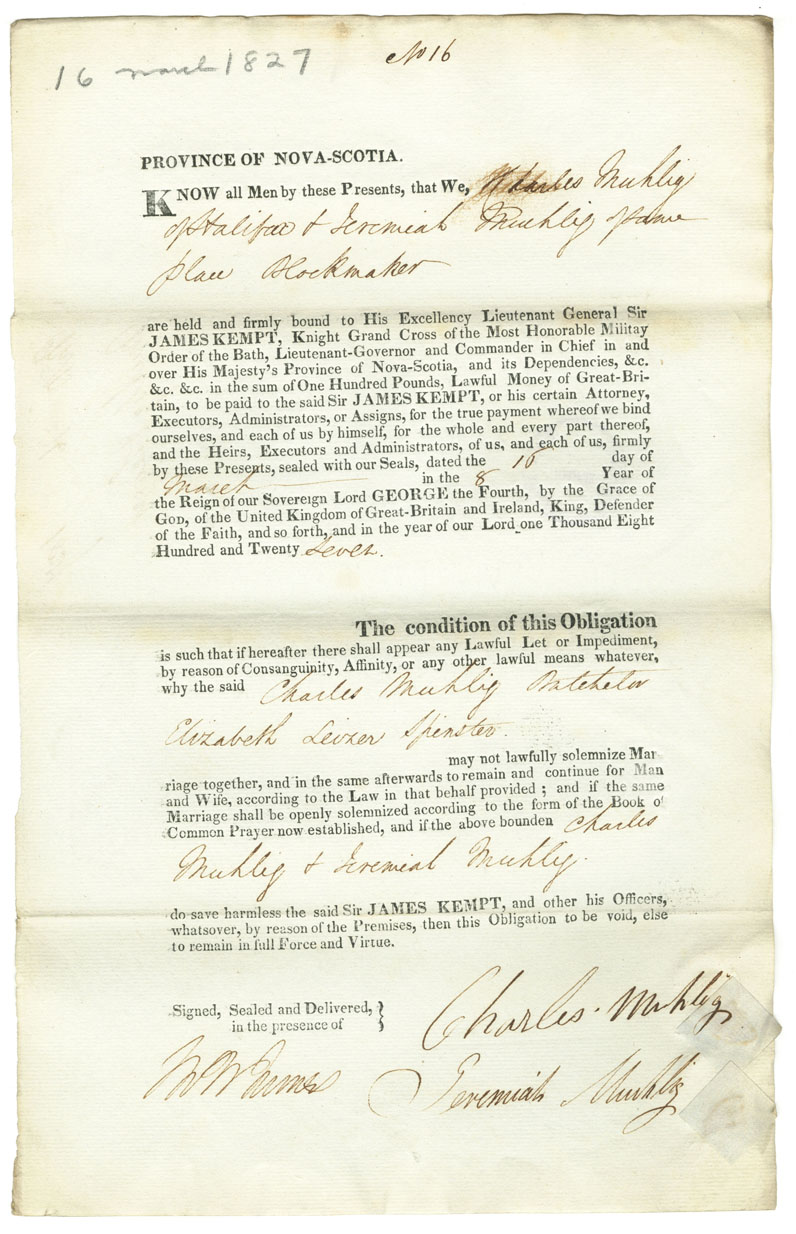 16 march 1827
No 16
PROVINCE OF NOVA-SCOTIA.
KNOW all Men by these Presents, that We, Charles Muhlig
of Halifax & Jeremiah Muhlig of same
place Blockmaker
are held and firmly bound to His Excellency Lieutenant General Sir
JAMES KEMPT, Knight Grand Cross of the Most Honorable Militay
Order of the Bath, Lieutenant-Governor and Commander in Chief in and
over His Majesty's Province of Nova-Scotia, and its Dependencies, &c.
&c. &c. in the sum of One Hundred Pounds, Lawful Money of Great-Bri-
tain, to be paid to the said Sir JAMES KEMPT, or his certain Attorney,
Executors, Administrators, or Assigns, for the true payment whereof we bind
ourselves, and each of us by himself, for the whole and every part thereof,
and the Heirs, Executors and Administrators, of us, and each of us, firmly
by these Presents, sealed with our Seals, dated the 16 day of
March in the 8 Year of
the Reign of our Sovereign Lord GEORGE the Fourth, by the Grace of
GOD, of the United Kingdom of Great-Britain and Ireland, King, Defender
of the Faith, and so forth, and in the year of our Lord one Thousand Eight
Hundred and Twenty Seven.
The condition of this Obligation
is such that if hereafter there shall appear any Lawful Let or Impediment,
by reason of Consanguinity, Affinity, or any other lawful means whatever,
why the said Charles Muhlig Batchelor
Elizabeth Leizer Spinster.
may not lawfully solemnize Mar
riage together, and in the same afterwards to remain and continue for Man
and Wife, according to the Law in that behalf provided ; and if the same
Marriage shall be openly solemnized according to the form of the Book of
Common Prayer now established, and if the above bounden Charles
Muhlig & Jeremiah Muhlig.
do save harmless the said Sir JAMES KEMPT, and other his Officers,
whatsover, by reason of the Premises, then this Obligation to be void, else
to remain in full Force and Virtue.
Signed, Sealed and Delivered,
in the presence of
Charles Muhlig
Jeremiah Muhlig